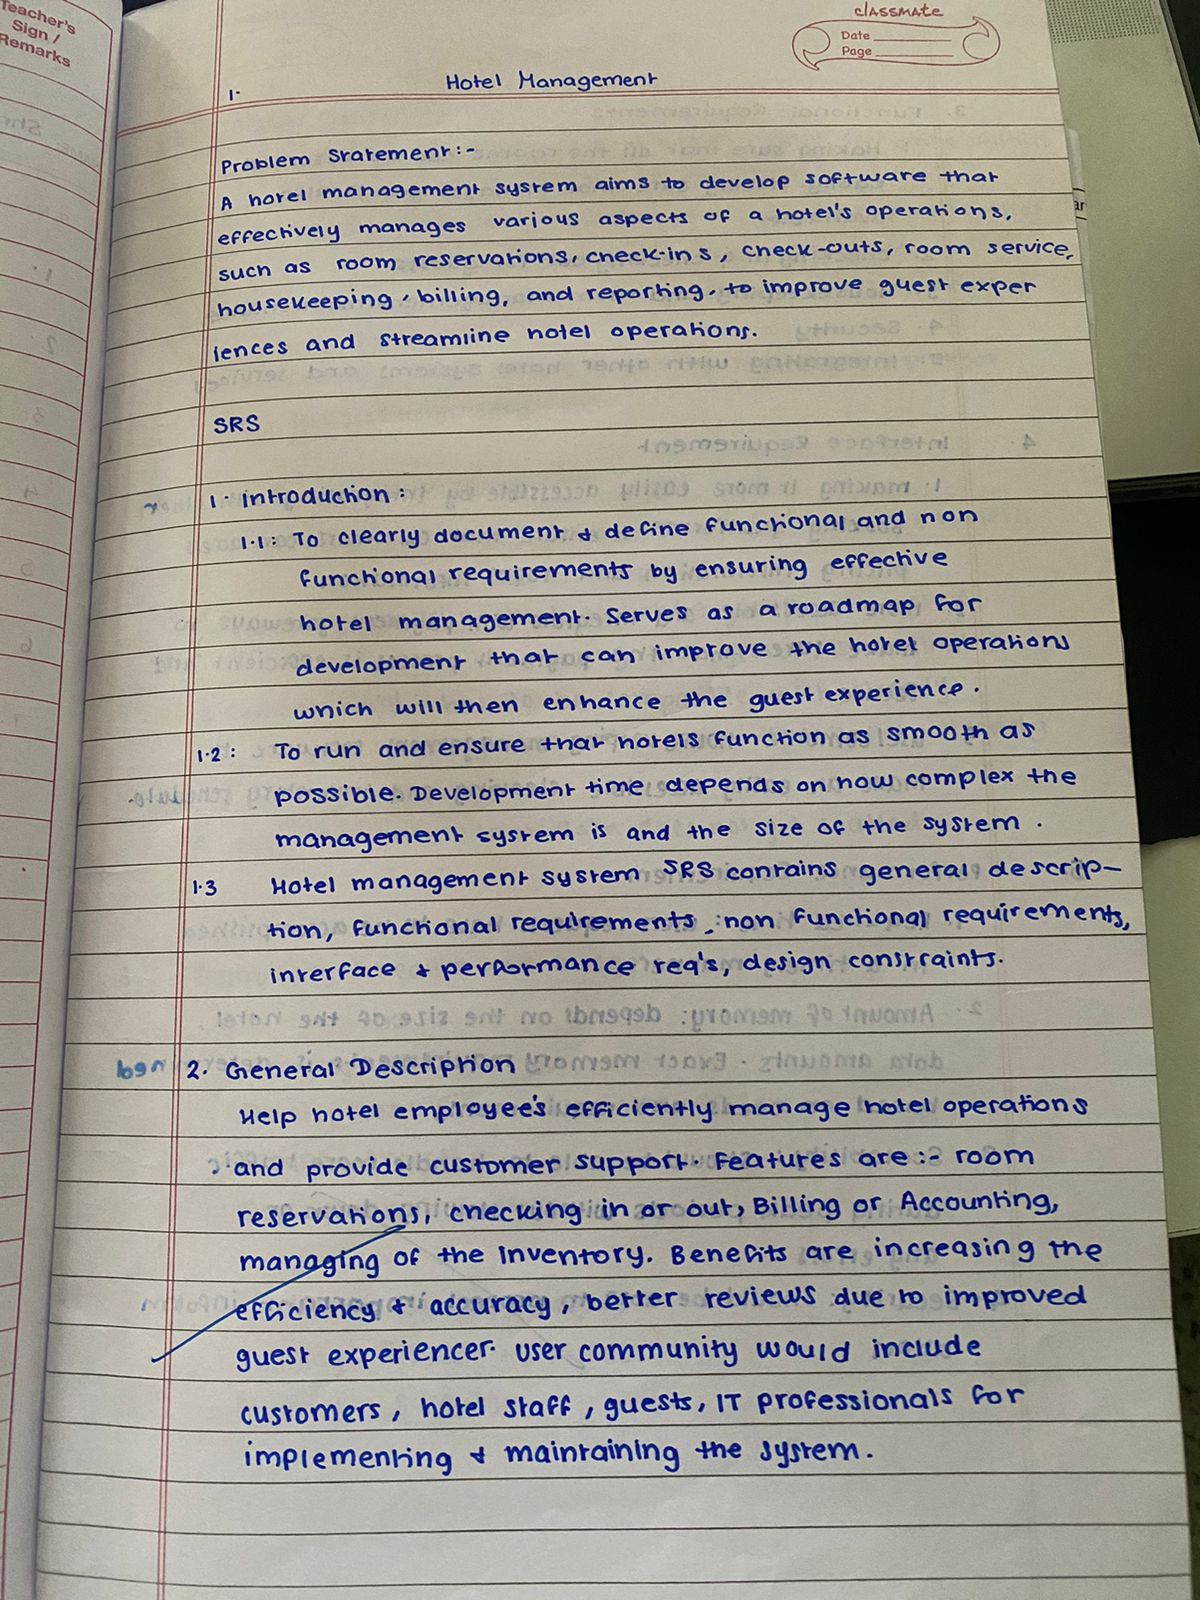 Teacher's
Sign /
Remarks
classmate
Date
Page
1.
Hotel Management
Problem Statement :-
A hotel management system aims to develop software that
effectively manages various aspects of a hotel's operations,
such as room reservations, check-ins, check-outs, room service,
housekeeping, billing, and reporting, to improve guest exper
iences and streamline hotel operations.
SRS
1. introduction :
1.1: To clearly document & define functional and non
functional requirements by ensuring effective
hotel management. Serves as a roadmap for
development that can improve the hotel operations
which will then enhance the guest experience.
1.2: To run and ensure that hotels function as smooth as
possible. Development time depends on how complex the
management system is and the size of the system.
1.3 Hotel management system SRS contains general descrip-
tion, functional requirements, non functional requirements,
interface & performance req's, design constraints.
2. General Description
Help hotel employee's efficiently manage hotel operations
and provide customer support. Features are :- room
reservations, checking in or out, Billing or Accounting,
managing of the inventory. Benefits are increasing the
efficiency & accuracy, better reviews due to improved
guest experiencer. user community would include
customers, hotel staff, guests, IT professionals for
implementing & maintaining the system.